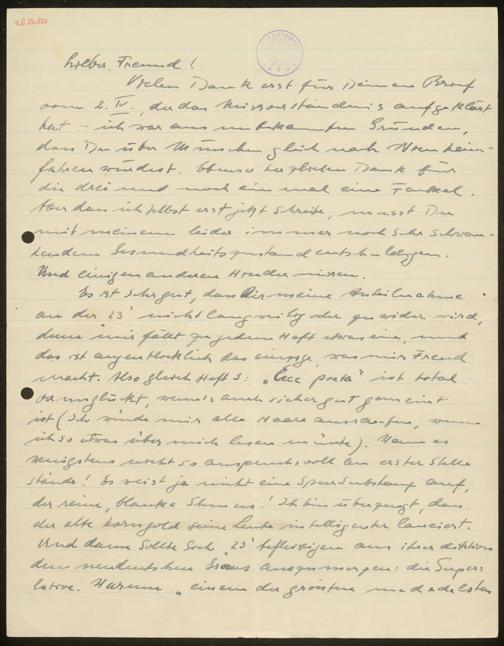 Lieber Freund!
Vielen Dank erst für Deinen Brief
vom 2. IV., der das Missverständnis aufgeklärt
hat – ich war aus unbekannten Gründen,
dass Du über München gleich nach Wien heim-
fahren würdest. Ebenso herzlichen Dank für
die drei und noch ein mal eine Fackel.
Aber dass ich selbst erst jetzt schreibe, musst Du
mit meinem leider immer noch sehr schwan-
kendem Gesundheitszustand entschuldigen.
Und einigen anderen Hindernissen.
Es ist sehr gut, dass Dir meine Anteilnahme
an der „23" nicht langweilig oder zuwider wird,
denn mir fällt zu jedem Heft etwas ein, und
das ist augenblicklich das einzige, was mir Freud
macht. Also gleich Heft 3: „Ecce poeta" ist total
verunglückt, wenn's auch sicher gut gemeint
ist (Ich würde mir alle Haare ausraufen, wenn
ich so etwas über mich lesen müsste). Wenn es
wenigstens nicht so anspruchsvoll an erster Stelle
stände! Es weist ja nicht eine Spur Substanz auf,
der reine, blanke Schmus! Ich bin überzeugt, dass
der alte Korngold seine Leute intelligenter lanciert.
Und dann sollte sich „23" befleissigen aus ihrer diktion
den neudeutschen auszumerzen: die Super-
lative. Warum „einem der grössten und edelsten